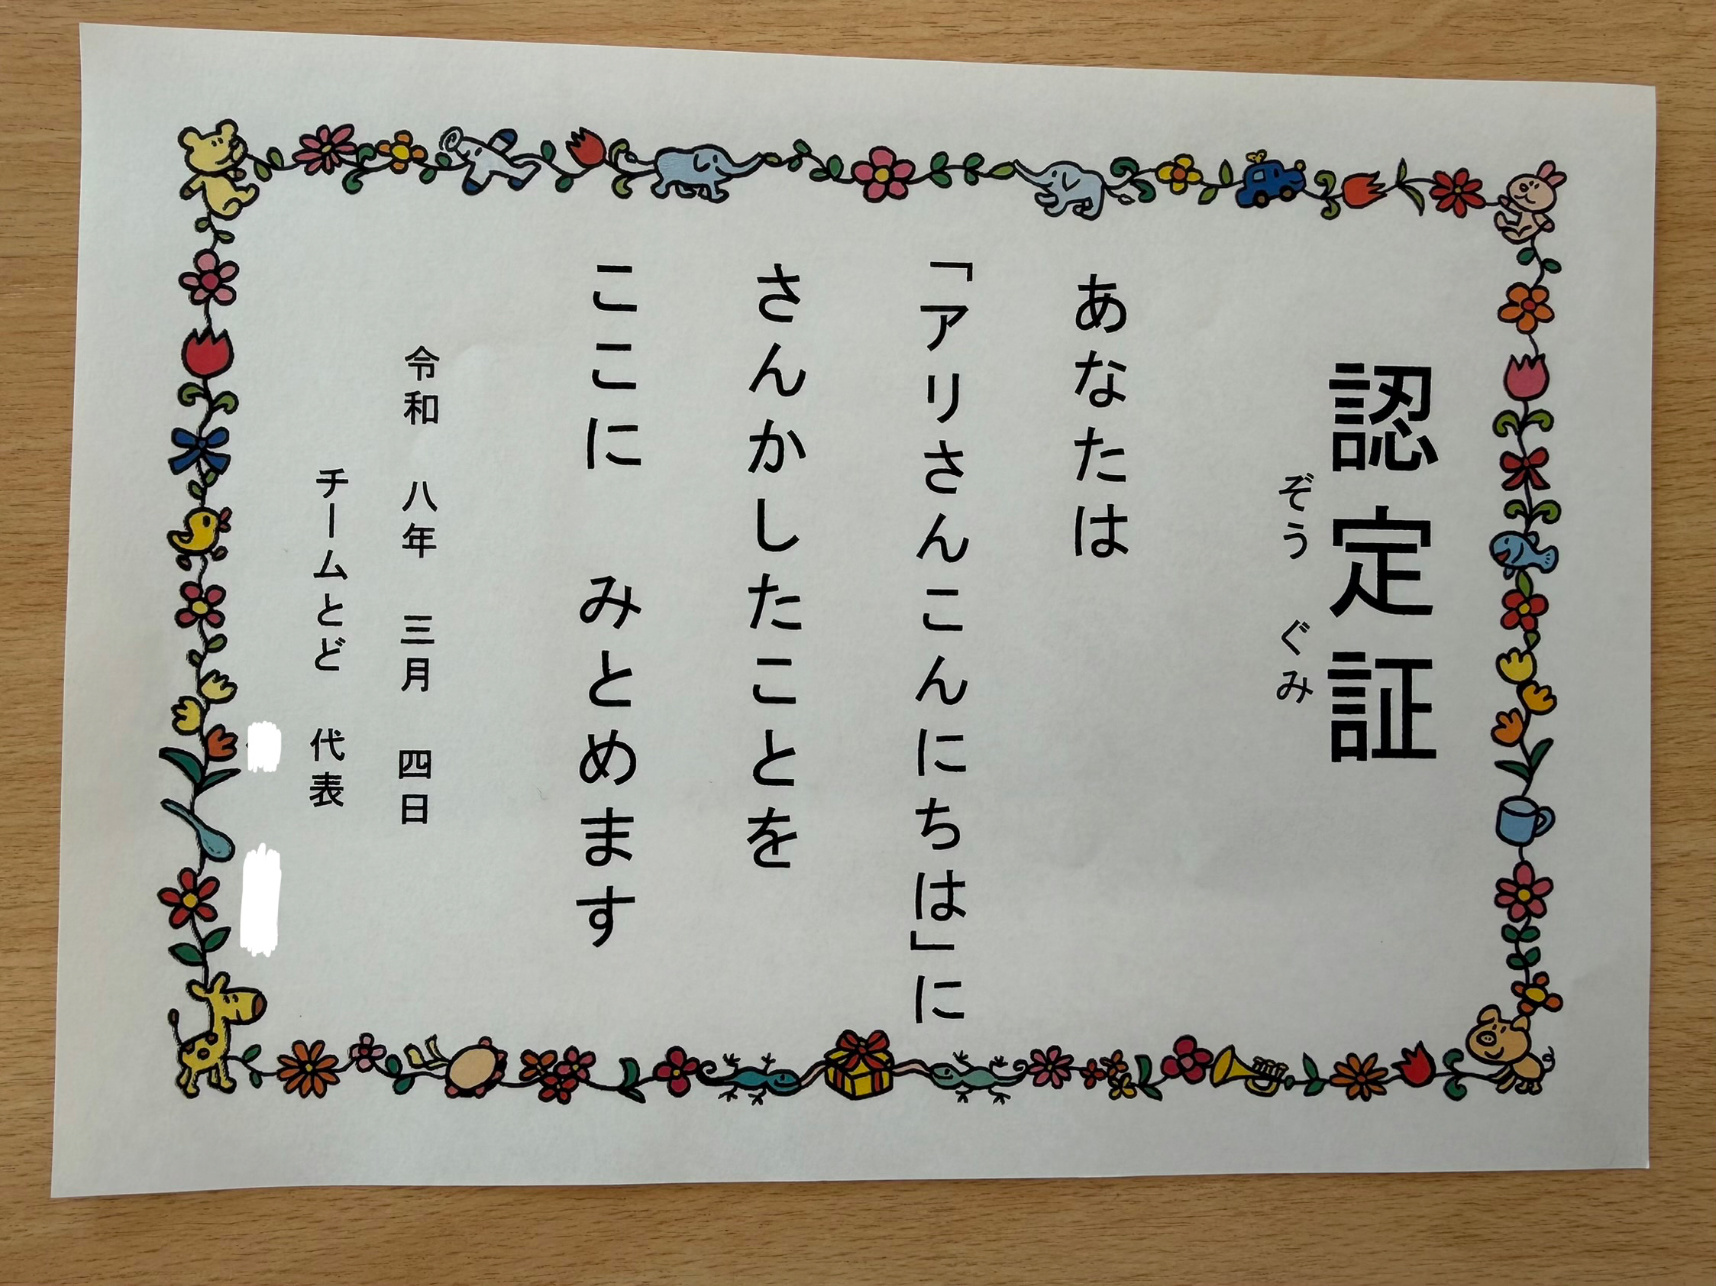 認定証
ぞう ぐみ
あなたは
「アリさんこんにちは」に
さんかしたことを
ここに みとめます
令和 八年 三月 四日
チームとど 代表